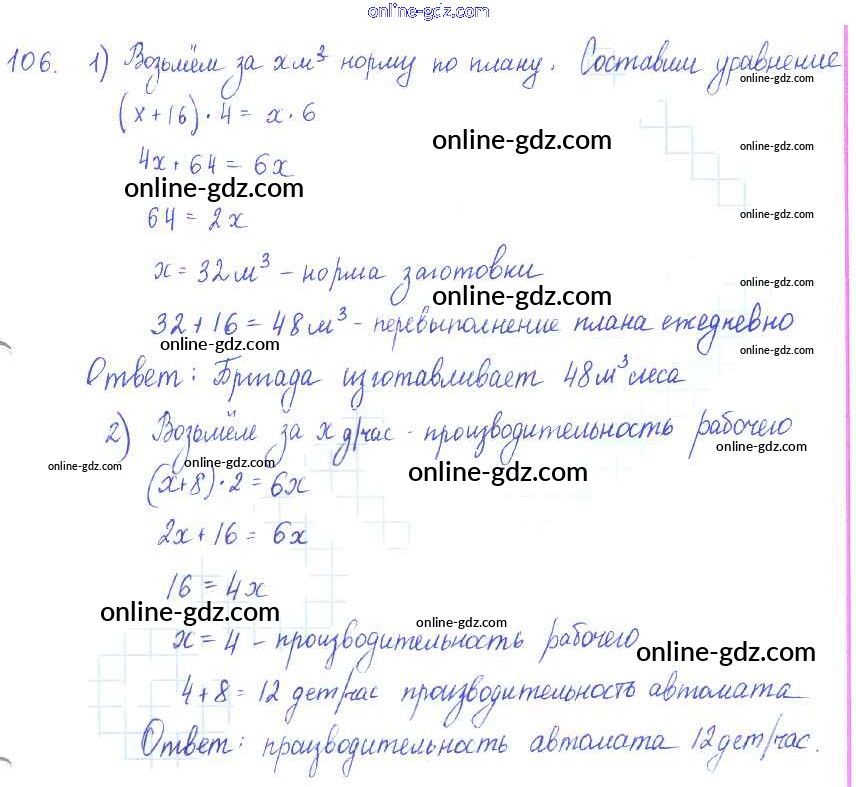 online-gdz.com
106. 1) Возьмём за x м³ норму по плану. Составим уравнение
online-gdz.com
(x+16)·4 = x·6
online-gdz.com
online-gdz.com
4x + 64 = 6x
online-gdz.com
64 = 2x
online-gdz.com
x = 32 м³ – норма заготовки
online-gdz.com
online-gdz.com
32 + 16 = 48 м³ – перевыполнение плана ежедневно
online-gdz.com
online-gdz.com
Ответ: Бригада изготавливает 48 м³ леса
2) Возьмём за x д/час - производительность рабочего
online-gdz.com
online-gdz.com
online-gdz.com
online-gdz.com
(x+8)·2 = 6x
2x + 16 = 6x
16 = 4x
online-gdz.com
online-gdz.com
x = 4 – производительность рабочего
online-gdz.com
4 + 8 = 12 дет/час производительность автомата
Ответ: производительность автомата 12 дет/час.